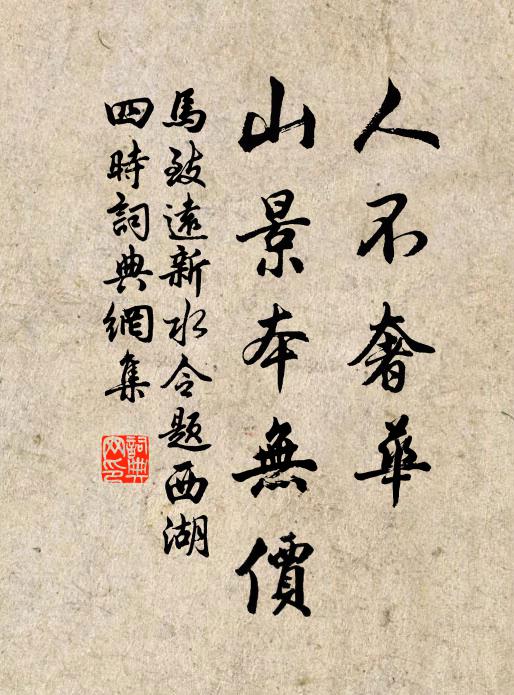 人不奢華
山景本無價
馬致遠新水令題西湖
四時詞典網集
詞典
网印